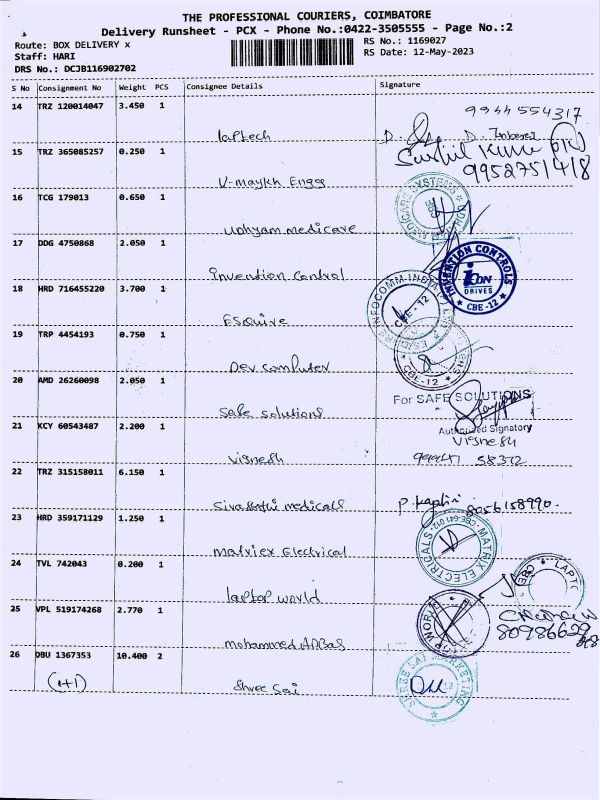 THE PROFESSIONAL COURIERS, COIMBATORE
Delivery Runsheet - PCX - Phone No.:0422-3505555 - Page No.:2
Route: BOX DELIVERY x
RS No.: 1169027
Staff: HARI
RS Date: 12-May-2023
DRS No.: DCJB116902702
S No Consignment No Weight PCS Consignee Details Signature
14 TRZ 120014047 3.450 1
9944554317
laptech
D.
15 TRZ 365085257 0.250 1
Sushil Kumar
9952751418
V-maykh Engg
16 TCG 179013 0.650 1
MEDICARE SYSTEMS
udhyam medicare
17 DDG 4750868 2.050 1
INVENTION CONTROLS
icon
DRIVES
* CBE-12 *
Invention Control
18 HRD 716455220 3.700 1
INFOCOMM INDIA
CBE-12
Esquire
19 TRP 4454193 0.750 1
CBE-12
Dev computer
20 AMD 26260098 2.050 1
For SAFE SOLUTIONS
Safe solutions
21 KCY 60543487 2.200 1
Authorized Signatory
Vignesh
Vignesh
99941 58372
22 TRZ 315158011 6.150 1
Sivasakthi medicals
P.
8056158990.
23 HRD 359171129 1.250 1
MATRIX ELECTRICALS
CBE-641 012
matriex Electrical
24 TVL 742043 0.200 1
LAPTO
CBE
laptop world
25 VPL 519174268 2.770 1
TOP WORLD
mohammed Abbas
26 DBU 1367353 10.400 2
SHREE SAI MARKETING
(1+1)
Shree Sai